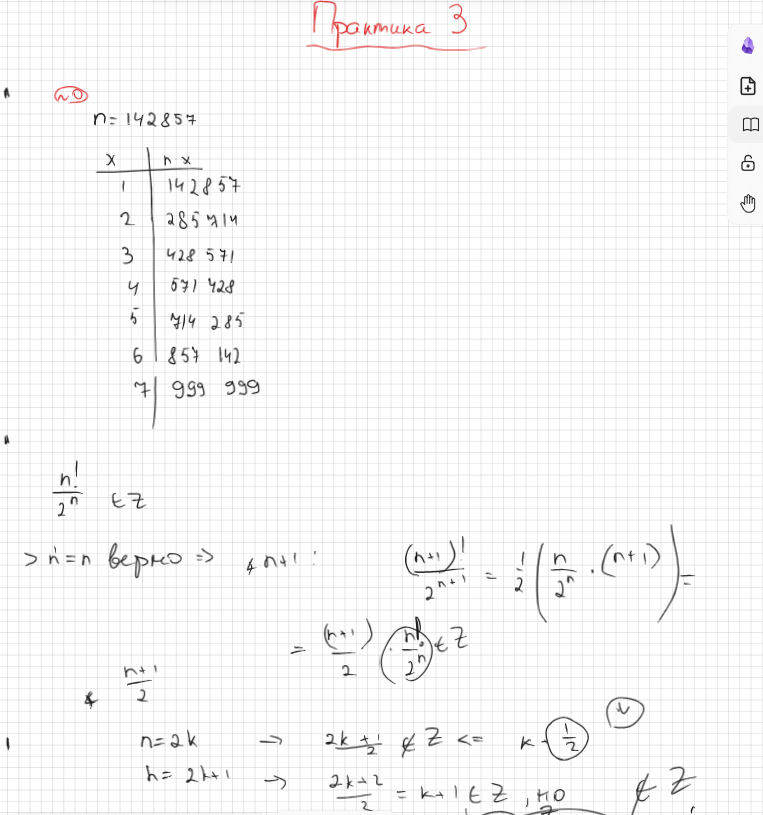 Практика 3
№0
n = 142857
x | n x
1 | 142857
2 | 285 714
3 | 428 571
4 | 571 428
5 | 714 285
6 | 857 142
7 | 999 999
n!/2^n ∈ Z
> n = n верно => ∢ n+1 : (n+1)!/2^(n+1) = 1/2 (n/2^n · (n+1)) =
= (n+1)/2 · (n!/2^n) ∈ Z
∢ (n+1)/2
n = 2k → (2k+1)/2 ∉ Z <= k + 1/2
n = 2k+1 → (2k+2)/2 = k+1 ∈ Z , но ∉ Z